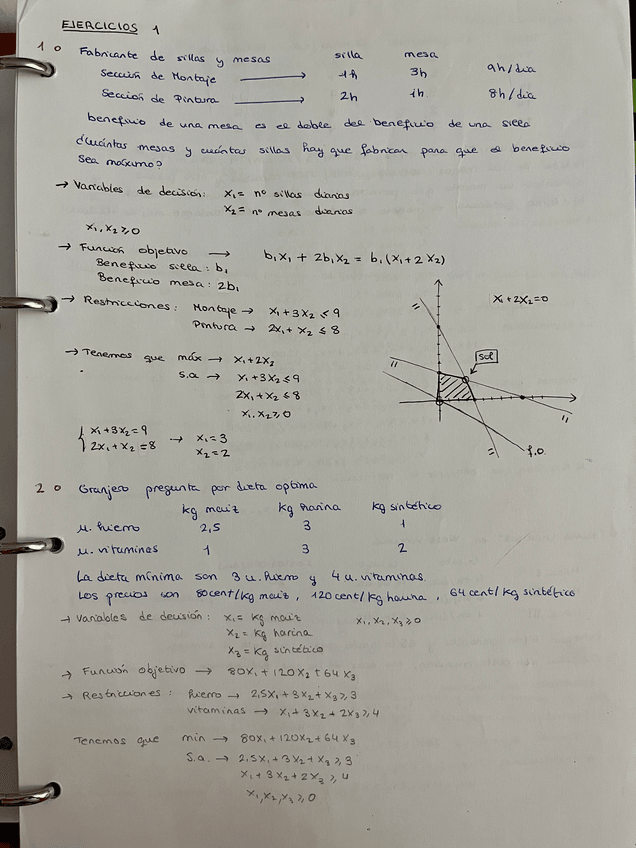 EJERCICIOS 1
1o Fabricante de sillas y mesas silla mesa
Sección de Montaje → 1h 3h 9h/dia
Sección de Pintura → 2h 1h 8h/dia
beneficio de una mesa es el doble del beneficio de una silla
¿Cuántas mesas y cuántas sillas hay que fabricar para que el beneficio
sea máximo?
→ Variables de decisión: x₁ = nº sillas diarias
x₂ = nº mesas diarias
x₁, x₂ ≥ 0
→ Función objetivo → b₁x₁ + 2b₁x₂ = b₁(x₁+2x₂)
Beneficio silla: b₁
Beneficio mesa: 2b₁
→ Restricciones: Montaje → x₁+3x₂ ≤ 9
Pintura → 2x₁+x₂ ≤ 8
x₁+2x₂=0
sol
f.o.
→ Tenemos que máx → x₁+2x₂
s.a → x₁+3x₂ ≤ 9
2x₁+x₂ ≤ 8
x₁, x₂ ≥ 0
{ x₁+3x₂=9
2x₁+x₂=8 → x₁=3
x₂=2
2o Granjero pregunta por dieta optima
kg maiz kg harina kg sintético
u. hierro 2,5 3 1
u. vitaminas 1 3 2
La dieta mínima son 3 u. hierro y 4 u. vitaminas.
Los precios son 80cent/kg maiz, 120 cent/kg harina, 64 cent/kg sintético
→ Variables de decisión: x₁ = kg maiz x₁, x₂, x₃ ≥ 0
x₂ = kg harina
x₃ = kg sintético
→ Función objetivo → 80x₁+120x₂+64x₃
→ Restricciones: hierro → 2,5x₁+3x₂+x₃ ≥ 3
vitaminas → x₁+3x₂+2x₃ ≥ 4
Tenemos que min → 80x₁+120x₂+64x₃
s.a. → 2,5x₁+3x₂+x₃ ≥ 3
x₁+3x₂+2x₃ ≥ 4
x₁, x₂, x₃ ≥ 0